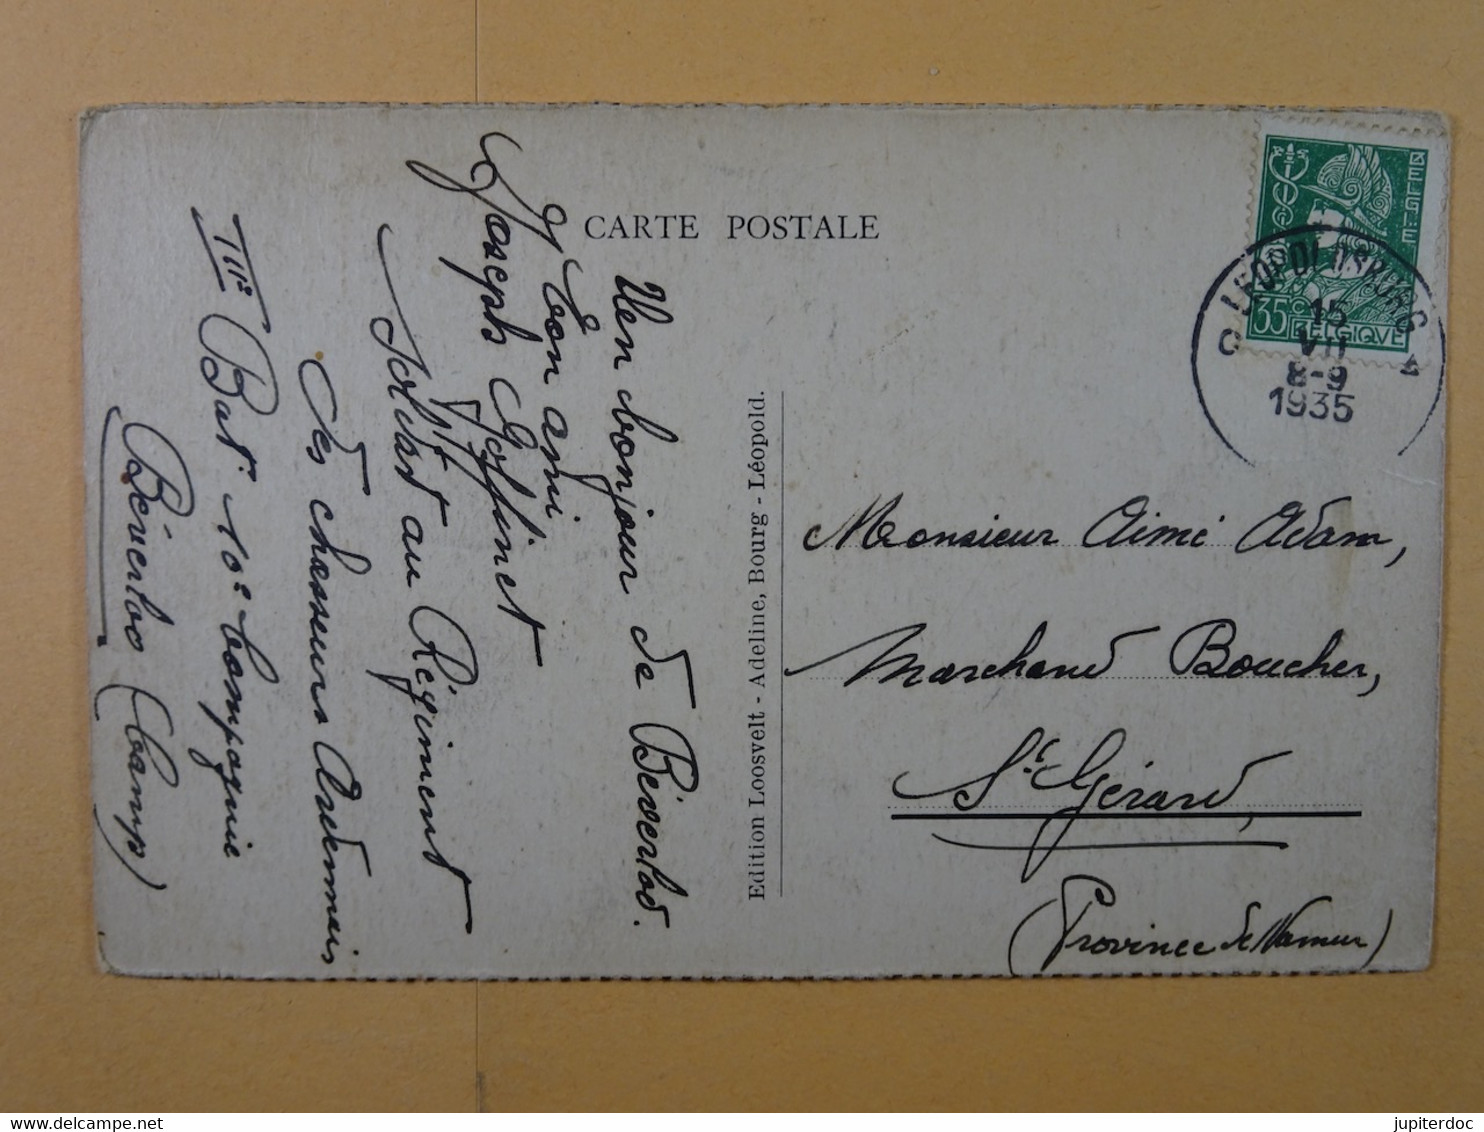 CARTE POSTALE
Un bonjour de Béverloo.
Ton ami
Joseph Goffinet
Soldat au Régiment
des chasseurs Ardennais
IIIe Bat. 10e Compagnie
Béverloo (Camp)
Edition Loosvelt - Adeline, Bourg - Léopold.
BELGIE
35c
BELGIQUE
LEOPOLDSBURG
15
VII
8-9
1935
Monsieur Aimé Adam,
Marchand Boucher,
St. Gérard,
(Province de Namur)
https://www.delcampe.net
jupiterdoc